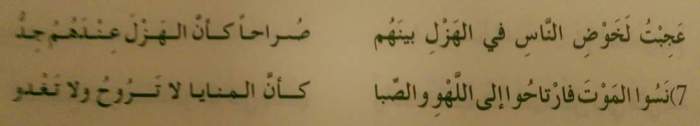 عَجِبْتُ لَخَوْضِ النَّاسِ في الهَزْلِ بينَهُم صُراحاً كأنَّ الهَزْلَ عِنْدَهُمُ جِدُّ
7) نَسُوا المَوْتَ فارْتاحُوا إلى اللَّهْوِ والصِّبا كأنَّ المنايا لا تَرُوحُ ولا تَغْدو